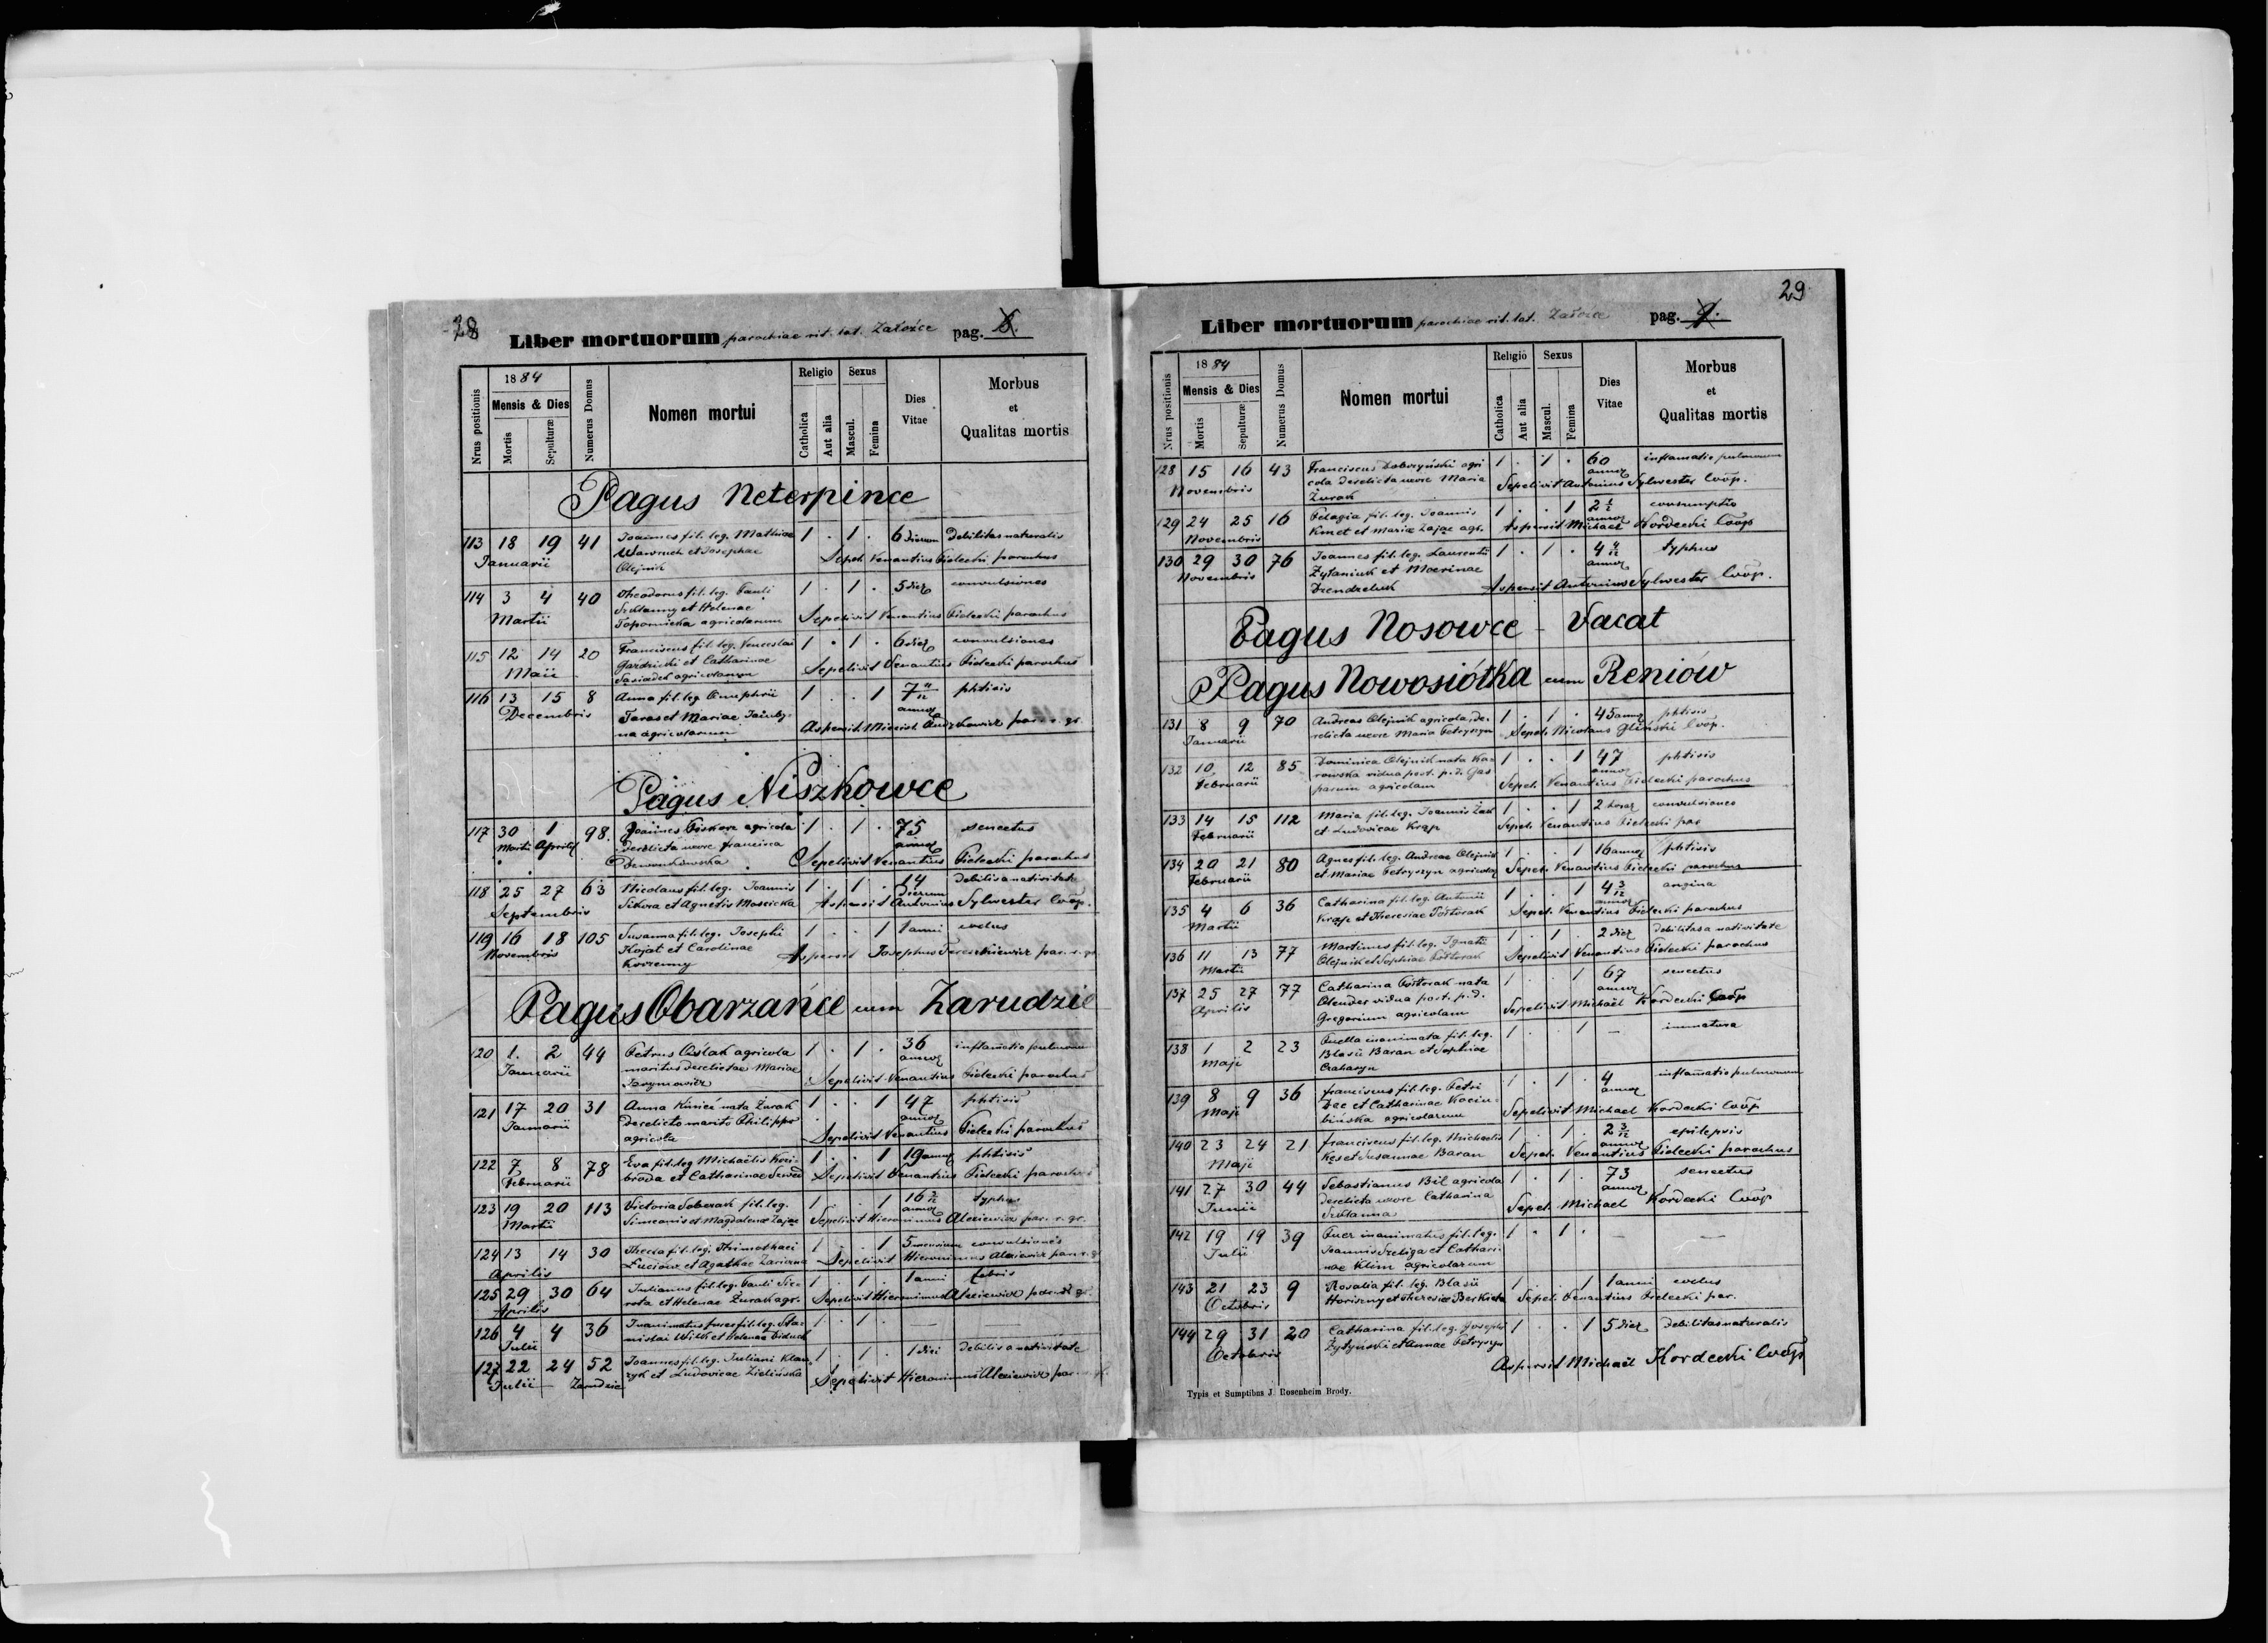 28
Liber mortuorum parochiae rit. lat. Załoźce pag. 8.
Nrus positionis
1884
Mensis & Dies
Mortis
Sepulturæ
Numerus Domus
Nomen mortui
Religio
Catholica
Aut alia
Sexus
Mascul.
Femina
Dies Vitae
Morbus et Qualitas mortis
Pagus Neterpince
113 18 19 41 Joannes fil. leg. Mathiae 1 . 1 . 6 dierum Debilitas naturalis
Januarii Wawruch et Josephae Sepel. Venantius Pielecki parochus
Olejnik
114 3 4 40 Theodorus fil. leg. Pauli 1 . 1 . 5 dier convulsiones
Martii et Helenae Sepelivit Venantius Pielecki parochus
Topornicka agricolarum
115 12 14 20 Franciscus fil. leg. Venceslai 1 . 1 . 6 dier convulsiones
Maii et Catharinae Sepelivit Venantius Pielecki parochus
Sąsiadek agricolarum
116 13 15 8 Anna fil. leg. Onuphrii 1 . . 1 7 annor phtisis
Decembris Taras et Mariae
na agricolarum Aspersit par. r. gr.
Pagus Niszkowce
117 30 1 98. Joannes Piskorz agricola 1 . 1 . 75 senectus
Martii Aprilis derelicta uxore Francisca annor
Sepelivit Venantius Pielecki parochus
118 25 27 63 Nicolaus fil. leg. Joannis 1 . 1 . 14 dierum Debilis a nativitate
Septembris Sikora et Agnetis Mościcka Aspersit Antonius Sylwester Coop.
119 16 18 105 Susanna fil. leg. Josephi 1 . . 1 1 anni
Novembris Kojat et Carolinae Aspersit Josephus Tereszkiewicz par. r. gr
Pagus Obarzańce cum Zarudzie
120 1. 2 44 Petrus agricola 1 . 1 . 36 annor inflamatio pulmonum
Januarii maritus derelictae Mariae
Sepelivit Venantius Pielecki parochus
121 17 20 31 Anna nata Żurak 1 . . 1 47 annor phtisis
Januarii derelicto marito Philippo
agricola Sepelivit Venantius Pielecki parochus
122 7 8 78 Eva fil. leg. Michaëlis 1 . . 1 19 annor phtisis
Februarii et Catharinae Sepelivit Venantius Pielecki parochus
123 19 20 113 Victoria Soberak fil. leg. 1 . . 1 16 annor typhus
Martii Simeonis et Magdalenae Zając Sepelivit Hieronimus Alexiewicz par. r. gr.
124 13 14 30 Thecla fil. leg. Thimothaei 1 . . 1 5 mensium convulsiones
Aprilis et Agathae Sepelivit Hieronimus Alexiewicz par. r. gr
125 29 30 64 Julianus fil. leg. Pauli 1 . 1 . 1 anni febris
Aprilis et Helenae Żurak agr. Sepelivit Hieronimus Alexiewicz par. r. gr.
126 4 4 36 Inanimatus puer fil. leg. Sta- 1 . 1 . — —
Julii nislai Wilk et Helenae
127 22 24 52 Joannes fil. leg. Juliani 1 . 1 . 1 diei debilis a nativitate
Julii — Zarudzie et Ludovicae Zielińska Sepelivit Hieronimus Alexiewicz par.
29
Liber mortuorum parochiae rit. lat. Załoźce pag. 9.
Nrus positionis
1884
Mensis & Dies
Mortis
Sepulturæ
Numerus Domus
Nomen mortui
Religio
Catholica
Aut alia
Sexus
Mascul.
Femina
Dies Vitae
Morbus et Qualitas mortis
128 15 16 43 Franciscus Dobrzyński agri 1 . 1 . 60 annor inflamatio pulmonum
Novembris cola derelicta uxore Maria Sepelivit Antonius Sylwester Coöp.
Żurak
129 24 25 16 Pelagia fil. leg. Joannis 1 . . 1 2 ½ annor consumptio
Novembris Kmet et Mariae Zając agr. Aspersit Michael Kordecki Coop
130 29 30 76 Joannes fil. leg. Laurentii 1 . 1 . 4 annor typhus
Novembris Żytaniuk et Marinae
Dzendzeluk Aspersit Antonius Sylwester Coöp.
Pagus Nosowce – Vacat
Pagus Nowosiółka cum Reniów
131 8 9 70 Andreas Olejnik agricola, de- 1 . 1 . 45 annor phtisis
Januarii relicta uxore Maria Petryszyn Sepel. Nicolaus Gliński Coop.
132 10 12 85 Dominica Olejnik nata Ka- 1 . . 1 47 annor phtisis
Februarii rowska vidua post. p. d. Gas
parum agricolam Sepel. Venantius Pielecki parochus
133 14 15 112 Maria fil. leg. Joannis Żak 1 . . 1 2 horar convulsiones
Februarii et Ludovicae Krąp Sepel. Venantius Pielecki par
134 20 21 80 Agnes fil. leg. Andreae Olejnik 1 . . 1 16 annor phtisis
Februarii et Mariae Petryszyn agricolar Sepel. Venantius Pielecki parochus
135 4 6 36 Catharina fil. leg. Antonii 1 . . 1 4 3/12 annor angina
Martii Krąp et Theresiae Półtorak Sepel. Venantius Pielecki parochus
136 11 13 77 Martinus fil. leg. Ignatii 1 . 1 . 2 dier debilitas a nativitate
Martii Olejnik et Sophiae Półtorak Sepelivit Venantius Pielecki parochus
137 25 27 77 Catharina Półtorak nata 1 . . 1 67 annor senectus
Aprilis Olender vidua post. p. d.
Gregorium agricolam Sepelivit Michaël Kordecki Coop
138 1 2 23 Puella inanimata fil. leg. 1 . . 1 — immatura
Maji Blasii Baran et Sophiae
139 8 9 36 Franciscus fil. leg. Petri 1 . 1 . 4 annor inflamatio pulmonum
Maji Dec et Catharinae
bińska agricolarum Sepelivit Michael Kordecki Coöp
140 23 24 21 Franciscus fil. leg. Michaelis 1 . 1 . 2 3/12 annor epilepsis
Maji Kęs et Susannae Baran Sepel. Venantius Pielecki parochus
141 27 30 44 Sebastianus Bil agricola 1 . 1 . 73 annor senectus
Junii derelicta uxore Catharina
Sepel. Michael Kordecki Coöp
142 19 19 39 Puer inanimatus fil. leg. 1 . 1 . — —
Julii Joannis Szeliga et Cathari-
nae Klim agricolarum
143 21 23 9 Rosalia fil. leg. Blasii 1 . . 1 1 anni
Octobris et Theresiae Sepel. Venantius Pielecki par.
144 29 31 20 Catharina fil. leg. Josephi 1 . . 1 5 dier debilitas naturalis
Octobris Żytyński et Annae Petryszyn
Aspersit Michaël Kordecki Coöp
Typis et Sumptibus J. Rosenheim Brody.